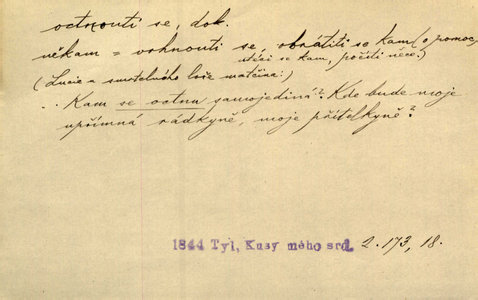 octnouti se, dok.
někam = vrhnouti se, obrátiti se kam (o pomoc,
utéci se kam, počíti něco.)
(Lucie u smrtelného lože matčina:)
.. Kam se octnu samojediná? Kde bude moje
upřímná rádkyně, moje přítelkyně?
1844 Tyl, Kusy mého srd. 2. 173, 18.